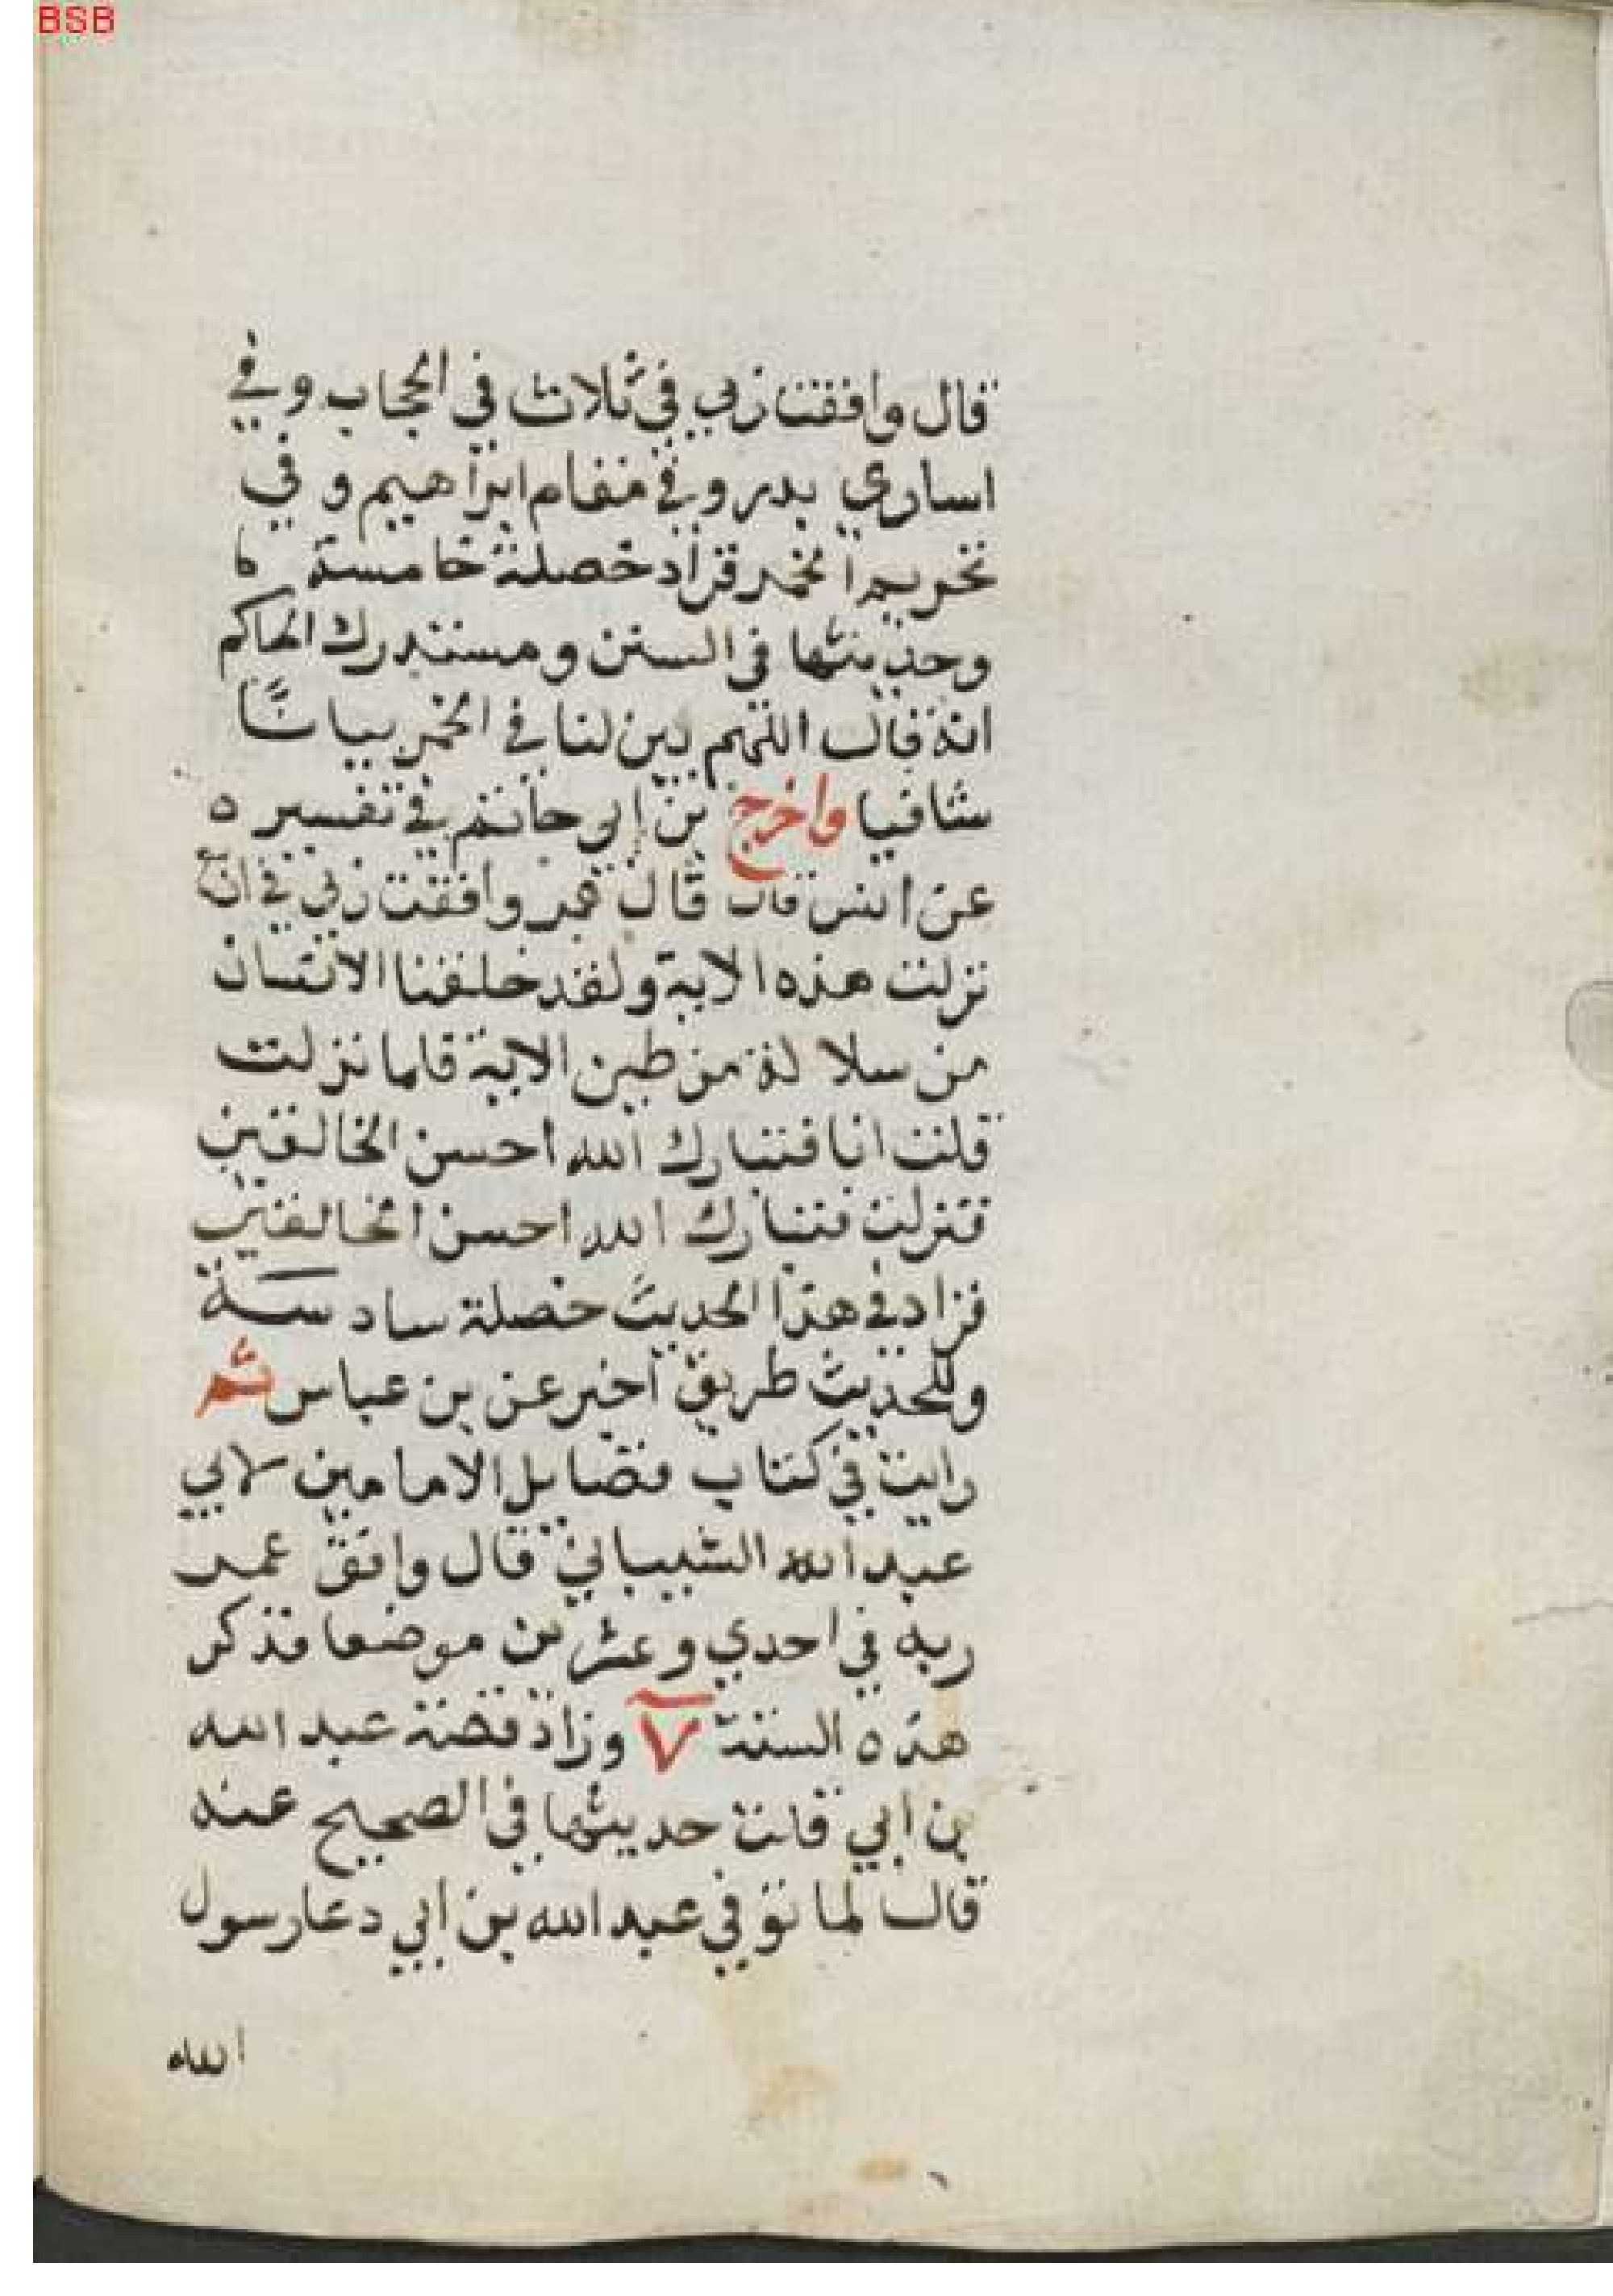 BSB
قال وافقت ربي في ثلاث في الحجاب وفي
اساري بدر وفي مقام ابراهيم وفي
تحريم الخمر فزاد خصلة خامسة
وحديثها في السنن ومستدرك الحاكم
انه قال اللهم بين لنا في الخمر بيانًا
شافيا واخرج بن ابي حاتم في تفسيره
عن انس قال قال عمر وافقت ربي في اربع
نزلت هذه الاية ولقد خلقنا الانسان
من سلالة من طين الاية فلما نزلت
قلت انا فتبارك الله احسن الخالقين
فنزلت فتبارك الله احسن الخالقين
فزاد في هذا الحديث خصلة سادسة
وللحديث طريق اخر عن بن عباس ثم
رايت في كتاب فضايل الامامين لابي
عبد الله الشيباني قال وافق عمر
ربه في احدي وعشرين موضعا فذكر
هذه الستة ٧ وزاد قصة عبد الله
بن ابي قلت حديثها في الصحيح عنه
قال لما توفي عبد الله بن ابي دعا رسول
الله